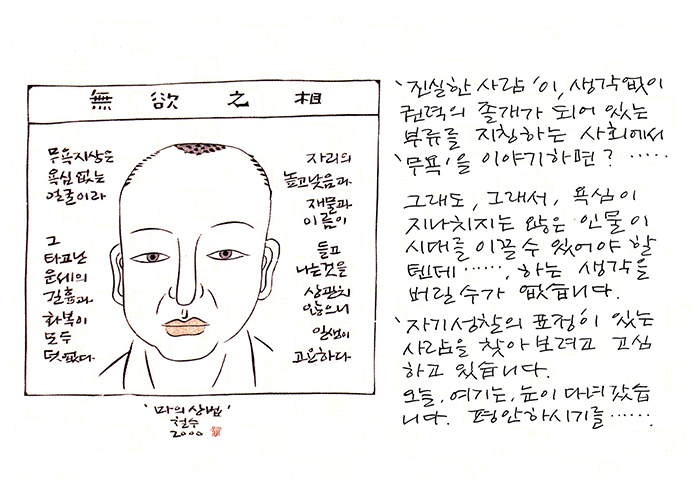 無欲之相
무욕지상은
욕심 없는
얼굴이라
그
타고난
운세의
길흉과
화복이
모두
덧없다.
자리의
높고낮음과
재물과
이름이
들고
나는것을
상관치
않으니
일생이
고요하다
'마의상법'
철수
2000
'진실한 사람'이, 생각없이
권력의 졸개가 되어 있는
부류를 지칭하는 사회에서
'무욕'을 이야기하면? ‥‥‥
그래도, 그래서, 욕심이
지나치지는 않은 인물이
시대를 이끌 수 있어야 할
텐데 ‥‥‥, 하는 생각을
버릴 수가 없습니다.
'자기성찰의 표정'이 있는
사람을 찾아 보려고 고심
하고 있습니다.
오늘, 여기는, 눈이 다녀 갔습
니다. 평안하시기를 ‥‥‥.